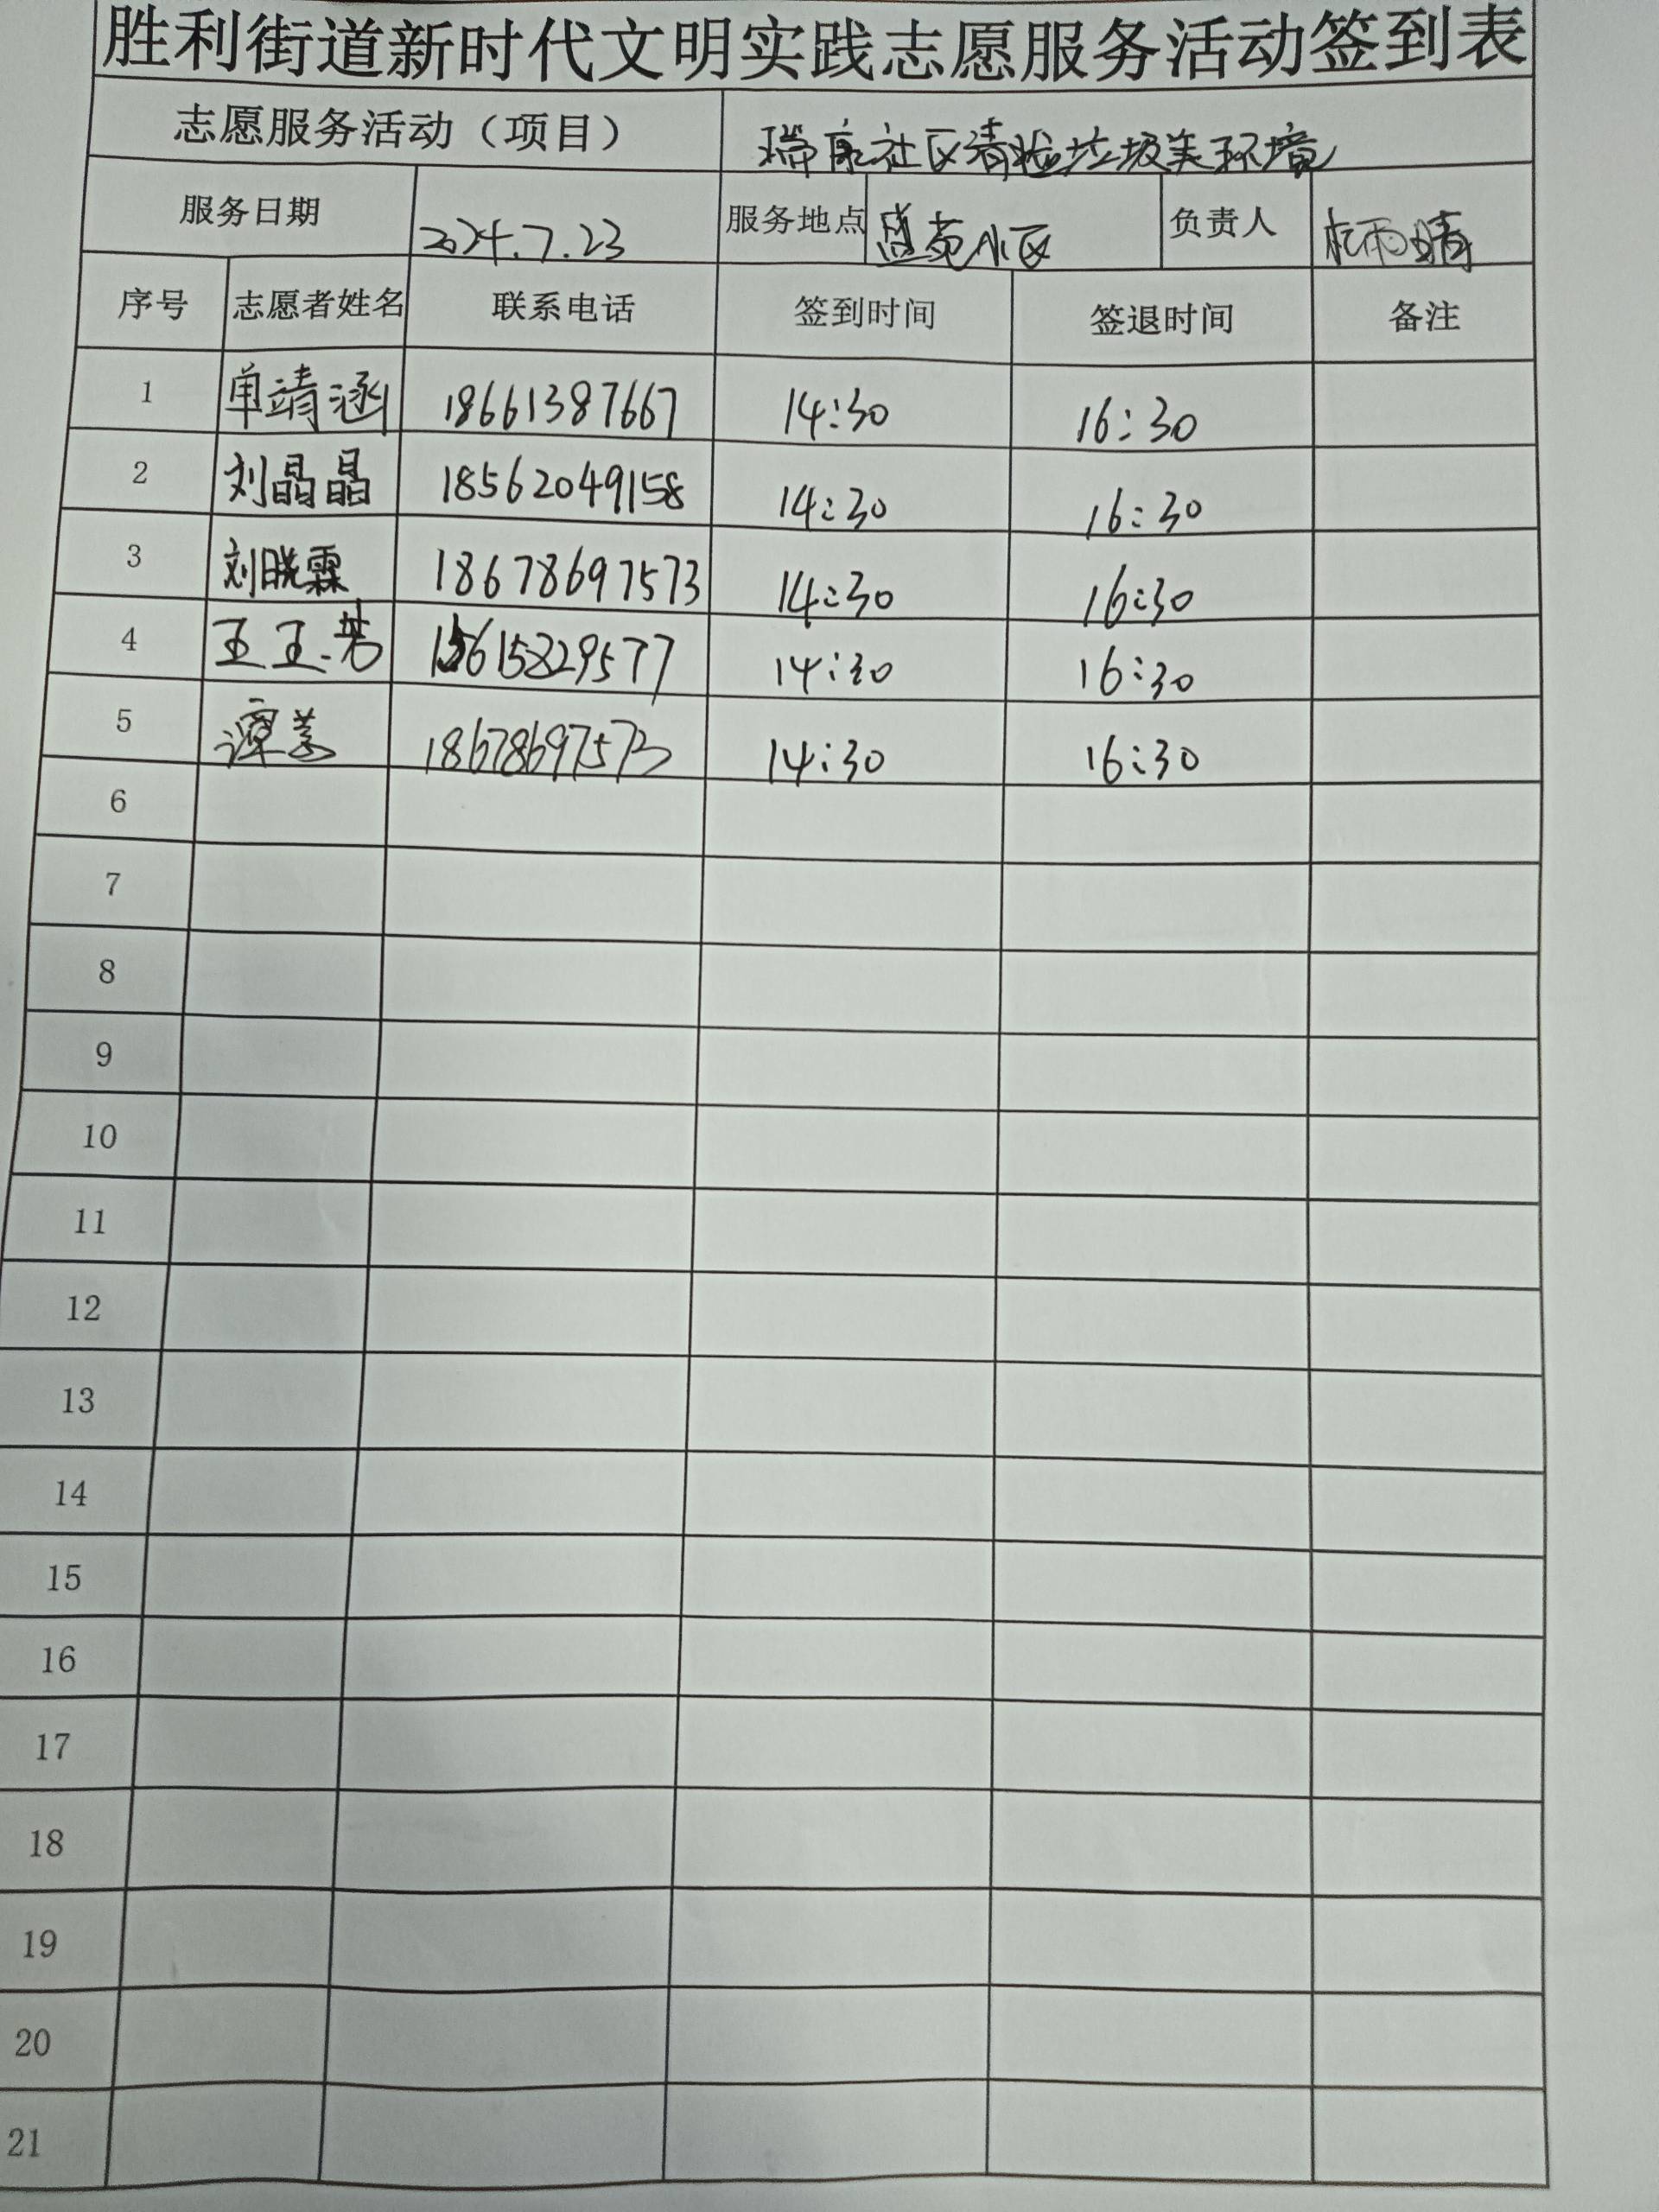 胜利街道新时代文明实践志愿服务活动签到表
志愿服务活动（项目） 瑞康社区清捡垃圾美环境
服务日期 2024.7.23 服务地点 盛苑小区 负责人 杜雨晴
序号 志愿者姓名 联系电话 签到时间 签退时间 备注
1 单靖涵 18661387667 14:30 16:30
2 刘晶晶 18562049158 14:30 16:30
3 刘晓霖 18678697573 14:30 16:30
4 王玉芳 15615829577 14:30 16:30
5 谭 18678697573 14:30 16:30
6
7
8
9
10
11
12
13
14
15
16
17
18
19
20
21